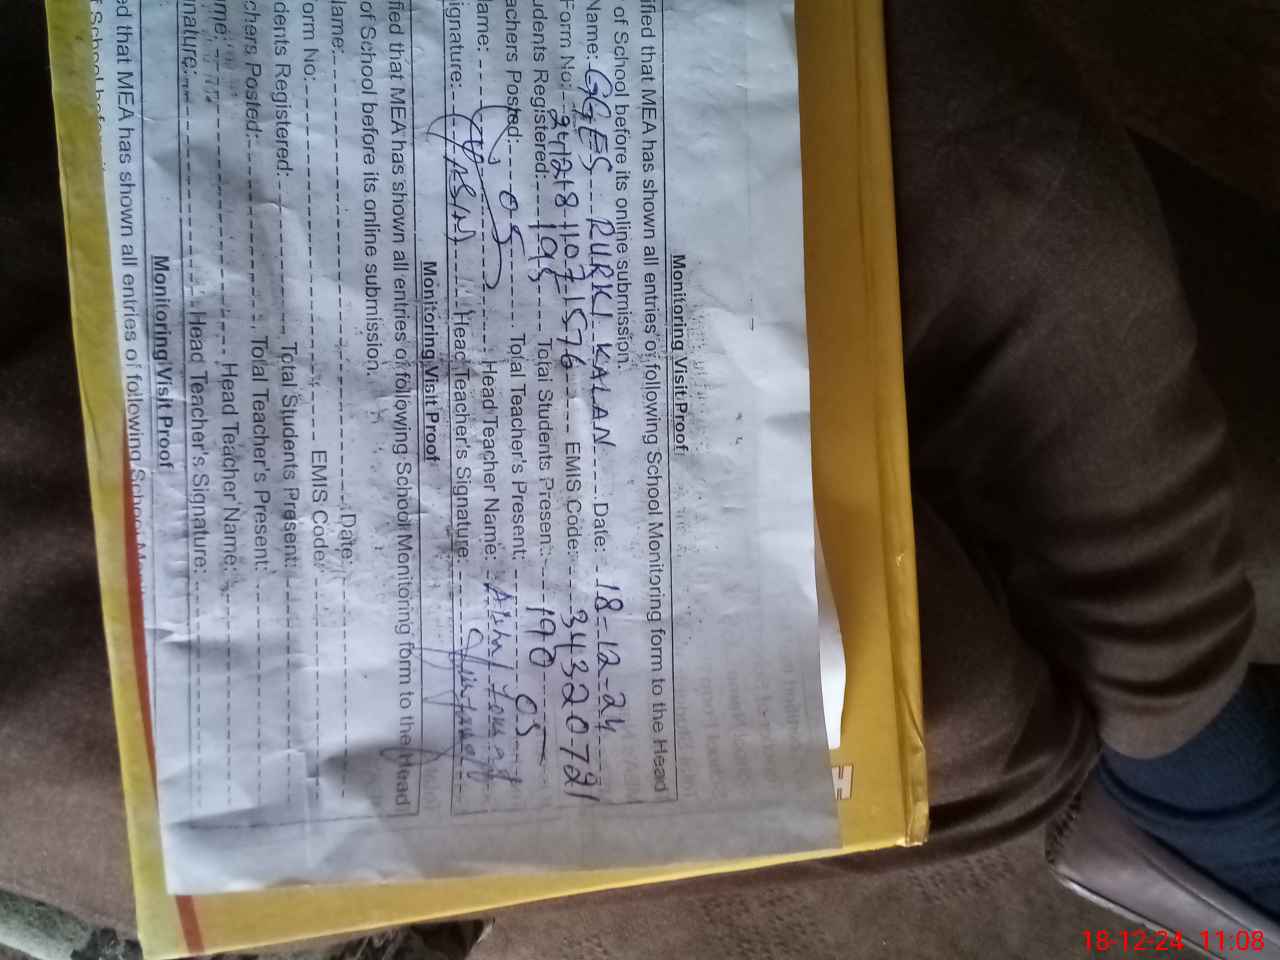 Monitoring Visit Proof
ified that MEA has shown all entries of following School Monitoring form to the Head
of School before its online submission.
Name: GGES RURKI KALAN Date: 18-12-24
Form No: 241218 1107 1576 EMIS Code: 34320721
udents Registered: 195 Total Students Present: 190
achers Posted: 05 Total Teacher's Present: 05
ame: Head Teacher Name:
ignature: (YASIN) Head Teacher's Signature:
Monitoring Visit Proof
fied that MEA has shown all entries of following School Monitoring form to the Head
of School before its online submission.
lame: Date:
orm No: EMIS Code:
dents Registered: Total Students Present:
chers Posted: Total Teacher's Present:
me: Head Teacher Name:
nature: Head Teacher's Signature:
Monitoring Visit Proof
ed that MEA has shown all entries of following School
f School before
18-12-24 11:08